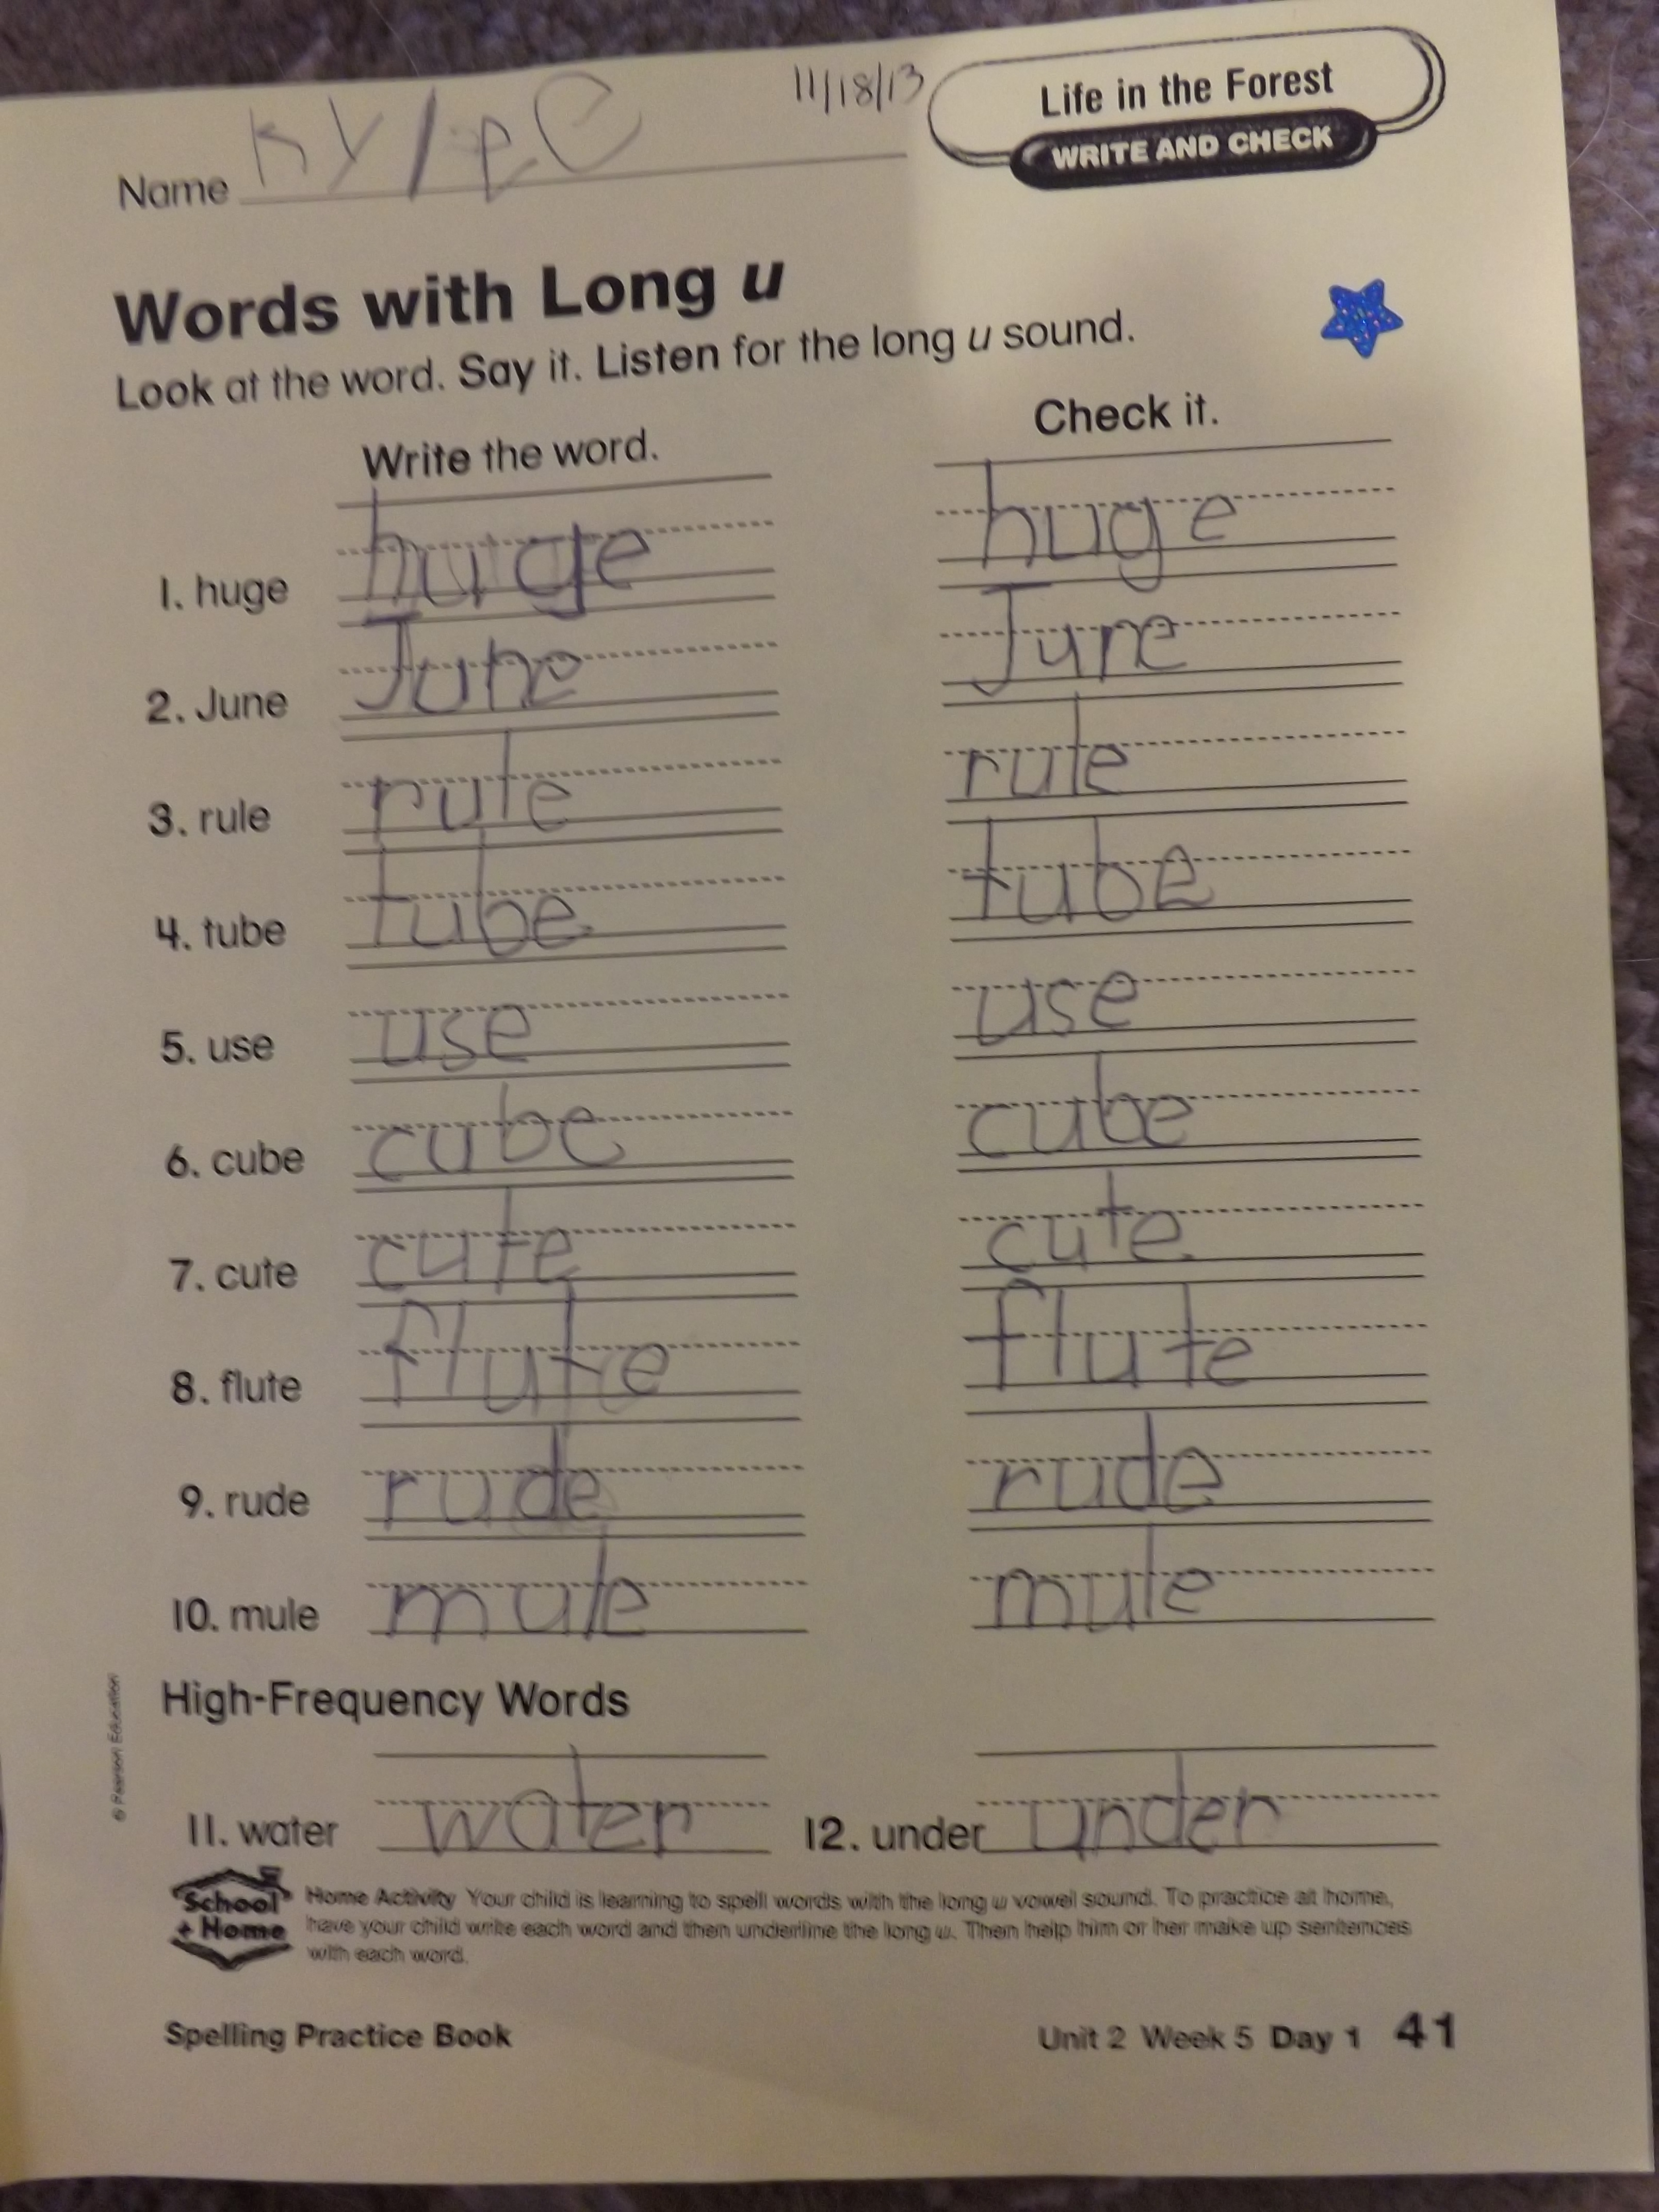 11/18/13
Life in the Forest
WRITE AND CHECK
Name
Words with Long u
Look at the word. Say it. Listen for the long u sound.
Write the word. Check it.
1. huge huge huge
2. June June June
3. rule rule rule
4. tube tube tube
5. use use use
6. cube cube cube
7. cute cute cute
8. flute flute flute
9. rude rude rude
10. mule mule mule
High-Frequency Words
11. water water 12. under under
© Pearson Education
School + Home
Home Activity Your child is learning to spell words with the long u vowel sound. To practice at home,
have your child write each word and then underline the long u. Then help him or her make up sentences
with each word.
Spelling Practice Book Unit 2 Week 5 Day 1 41